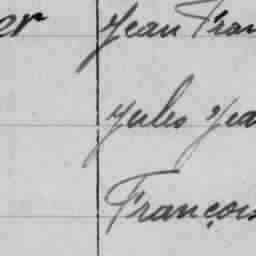 er Jean Fran
Jules Jea
François